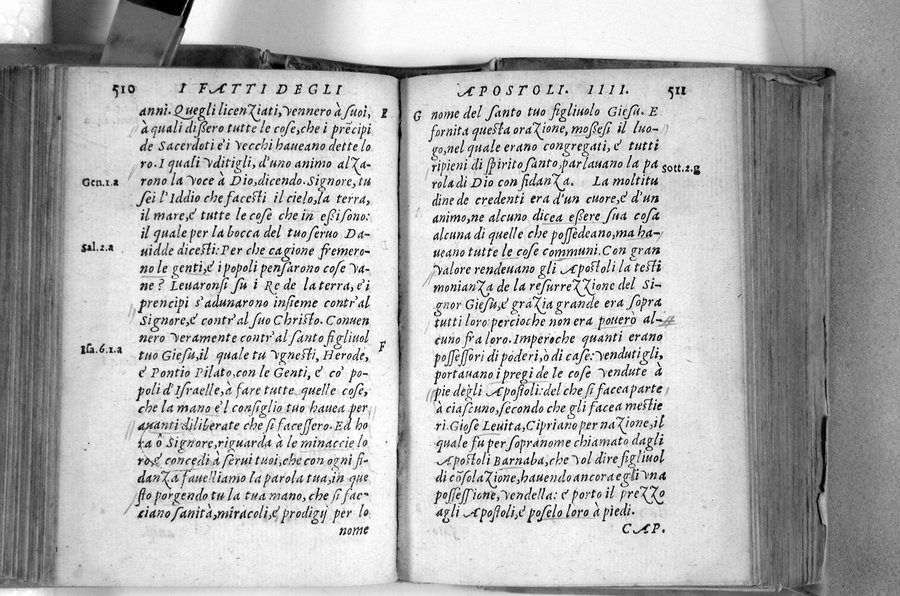 510 I FATTI DEGLI
anni. Quegli licenziati, vennero à suoi,
à quali dißero tutte le cose, che i prẽcipi
de Sacerdoti e i vecchi haueano dette lo
ro. I quali vditigli, d'uno animo alza-
rono la voce à Dio, dicendo. Signore, tu
sei l'Iddio che facesti il cielo, la terra,
il mare, e tutte le cose che in eßi sono:
il quale per la bocca del tuo seruo Da-
uidde dicesti: Per che cagione fremero-
no le genti, e i popoli pensarono cose va-
ne? Leuaronsi su i Re de la terra, e i
prencipi s'adunarono insieme contr'al
Signore, e contr'al suo Christo. Conuen
nero veramente contr'al santo figliuol
tuo Giesu, il quale tu vgnesti, Herode,
e Pontio Pilato, con le Genti, e co' po-
poli d'Israelle, à fare tutte quelle cose,
che la mano e'l consiglio tuo hauea per
auanti diliberate che si facessero. Ed ho
ra ô Signore, riguarda à le minaccie lo
ro e concedi à serui tuoi, che con ogni fi-
danza fauelliamo la parola tua, in que
sto porgendo tu la tua mano, che si fac-
ciano sanità, miracoli, e prodigij per lo
nome
Gen.1.a
Sal.2.a
Isa.6.1.a
F
F
APOSTOLI. IIII. 511
G
nome del santo tuo figliuolo Giesu. E
fornita questa orazione, moßesi il luo-
go, nel quale erano congregati, e tutti
ripieni di spirito santo, parlauano la pa
rola di Dio con fidanza. La moltitu
dine de credenti era d'un cuore, e d'un
animo, ne alcuno dicea eßere sua cosa
alcuna di quelle che possedeano, ma ha-
ueano tutte le cose communi. Con gran
valore rendeuano gli Apostoli la testi
monianza de la resurrezzione del Si-
gnor Giesu, e grazia grande era sopra
tutti loro: percioche non era pouero al-
cuno fra loro. Imperoche quanti erano
possessori di poderi, ò di case: vendutigli,
portauano i pregi de le cose vendute à
pie degli Apostoli: del che si facea parte
à ciascuno, secondo che gli facea mestie
ri. Giose Leuita, Cipriano per nazione, il
quale fu per sopranome chiamato dagli
Apostoli Barnaba, che vol dire figliuol
di cõsolazione, hauendo ancora egli vna
possessione, vendella: e porto il prezzo
agli Apostoli, e poselo loro à piedi.
CAP.
Sott.2.g